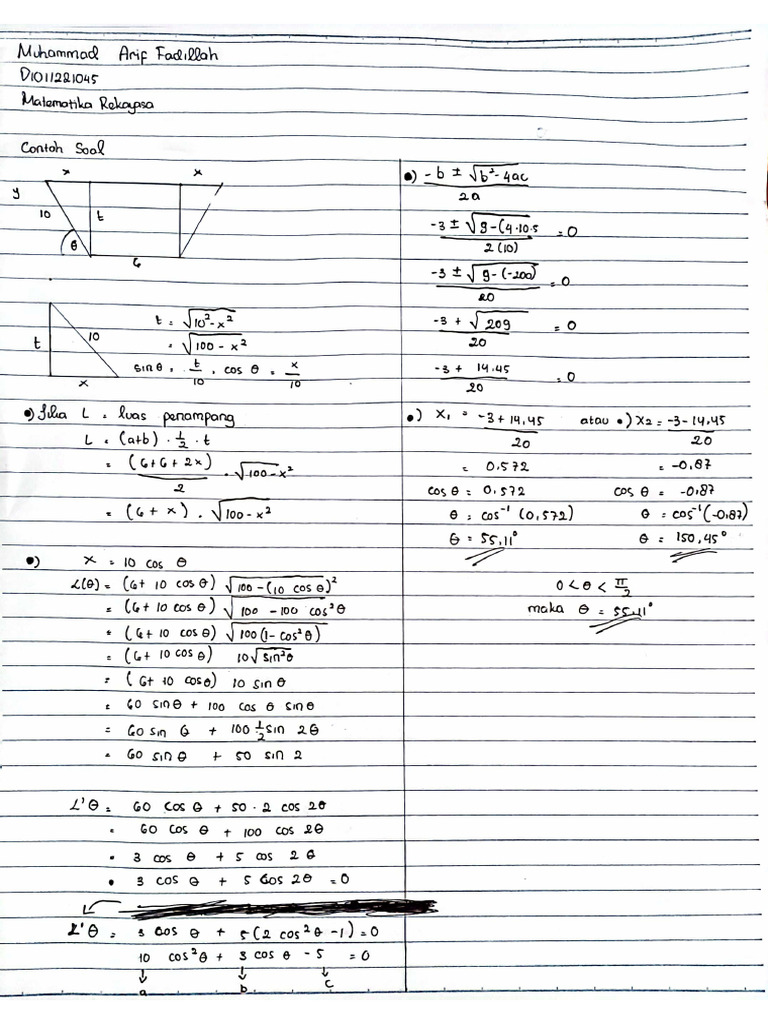 Muhammad Arif Fadillah
D1011221045
Matematika Rekayasa
Contoh Soal
x x
y
10 t
θ
6
t 10
x
t = √10² - x²
= √100 - x²
sin θ = t/10 , cos θ = x/10
•) Jika L = luas penampang
L = (a+b) · 1/2 · t
= (6+6+2x)/2 · √100 - x²
= (6 + x) · √100 - x²
•) x = 10 cos θ
L(θ) = (6+ 10 cos θ) √100 - (10 cos θ)²
= (6+ 10 cos θ) √100 - 100 cos²θ
= (6+ 10 cos θ) √100(1 - cos²θ)
= (6+ 10 cos θ) 10√sin²θ
= (6+ 10 cosθ) 10 sin θ
= 60 sinθ + 100 cos θ sinθ
= 60 sin θ + 100 1/2 sin 2θ
= 60 sin θ + 50 sin 2
L'θ = 60 cosθ + 50 · 2 cos 2θ
= 60 cos θ + 100 cos 2θ
= 3 cos θ + 5 cos 2θ
• 3 cos θ + 5 cos 2θ = 0
L'θ = 3 cos θ + 5(2 cos²θ - 1) = 0
10 cos²θ + 3 cos θ - 5 = 0
↓ ↓ ↓
a b c
•) (-b ± √b² - 4ac)/2a
(-3 ± √9 - (4·10·5)/2(10) = 0
(-3 ± √9 - (-200))/20 = 0
(-3 + √209)/20 = 0
(-3 + 14.45)/20 = 0
•) x₁ = (-3 + 14,45)/20 atau •) x₂ = (-3 - 14,45)/20
= 0,572 = -0,87
cos θ = 0,572 cos θ = -0,87
θ = cos⁻¹ (0,572) θ = cos⁻¹ (-0,87)
θ = 55,11° θ = 150,45°
0 < θ < π/2
maka θ = 55,11°